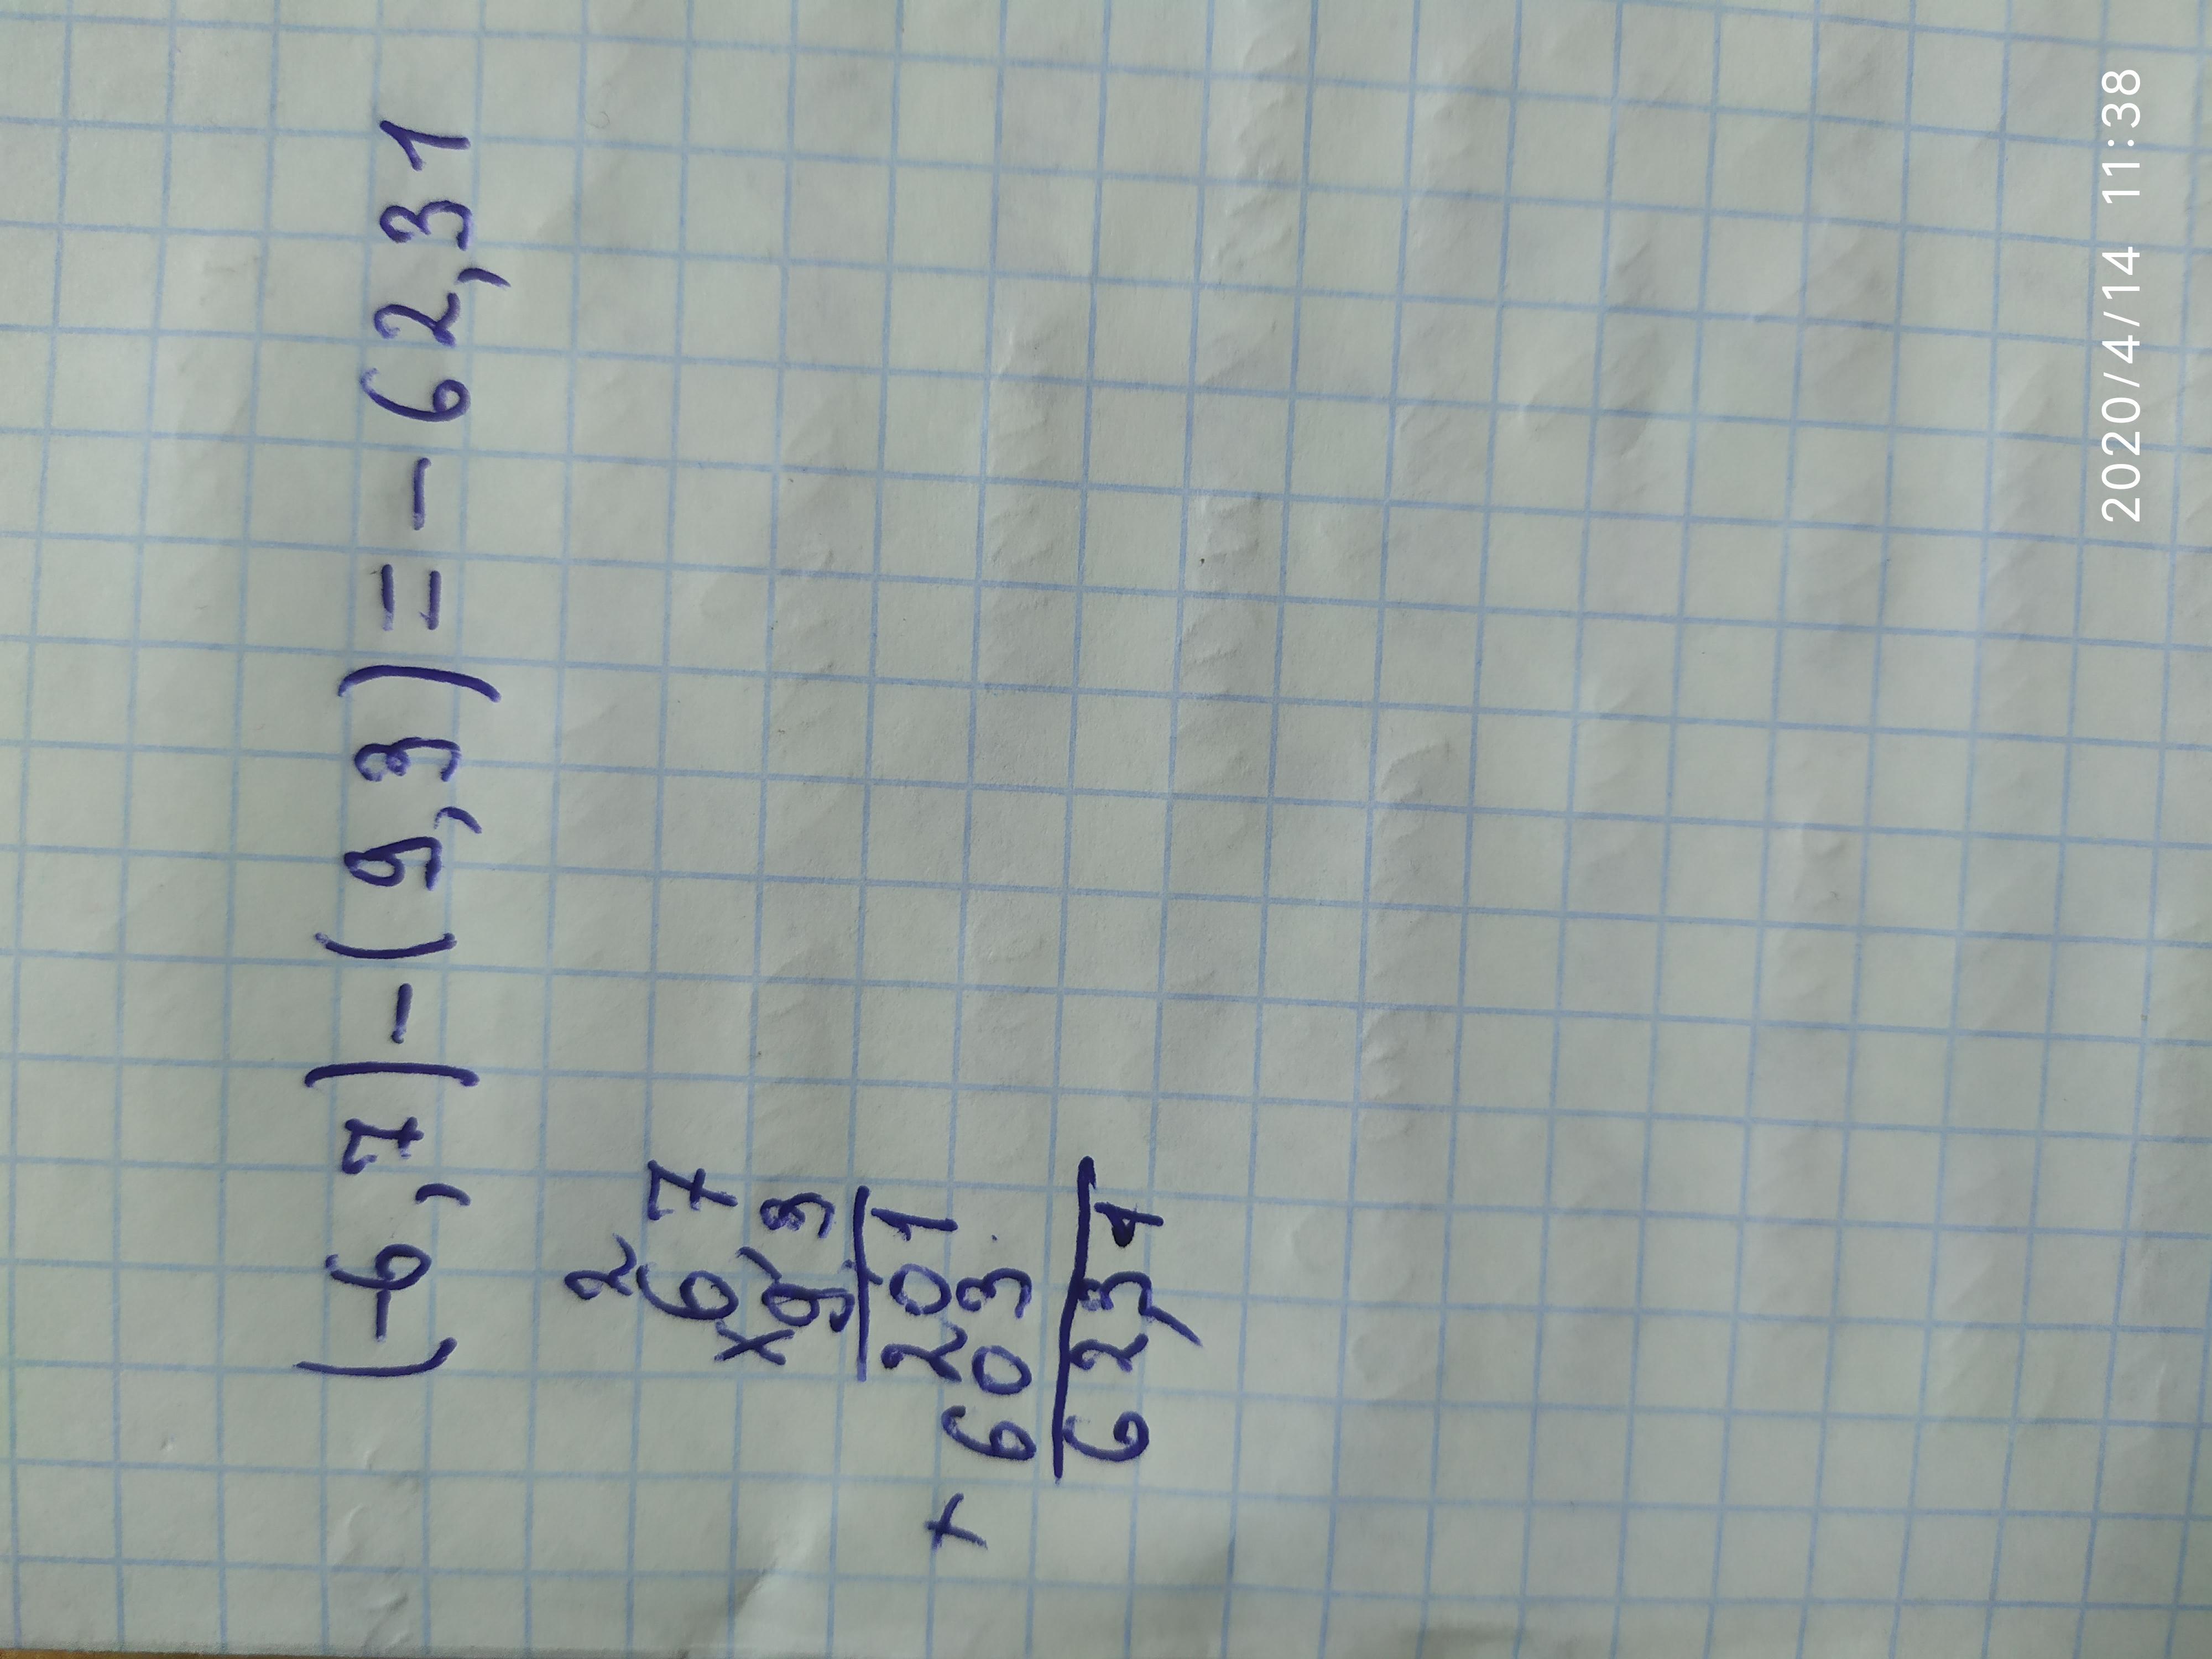 (-6,7)-(9,3)=-62,31
2
67
×93
201
+ 603
62,31
2020/4/14 11:38